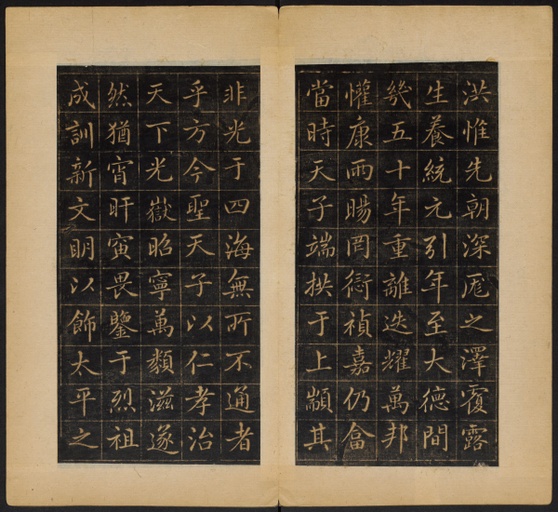 洪惟先朝深庬之澤覆露
生養統元引年至大德間
幾五十年重離迭耀萬邦
懽康雨暘罔愆禎嘉仍畣
當時天子端拱于上顒其
非光于四海無所不通者
乎方今聖天子以仁孝治
天下光嶽昭寧萬纇滋遂
然猶宵旰寅畏鑒于烈祖
成訓新文明以飾太平之